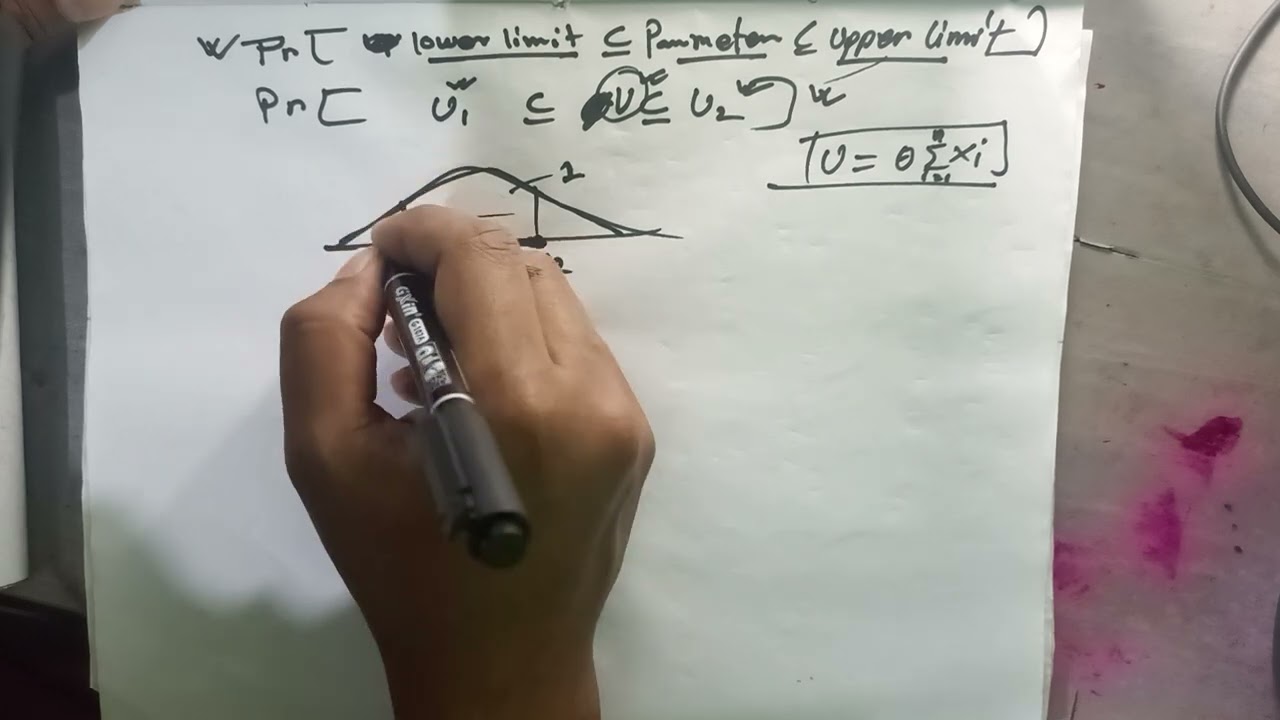 Pr[ lower limit ⊆ Parameter ≤ upper limit]
Pr[ U₁ ⊆ U ⊆ U₂ ]
U = θ Σ xi
1